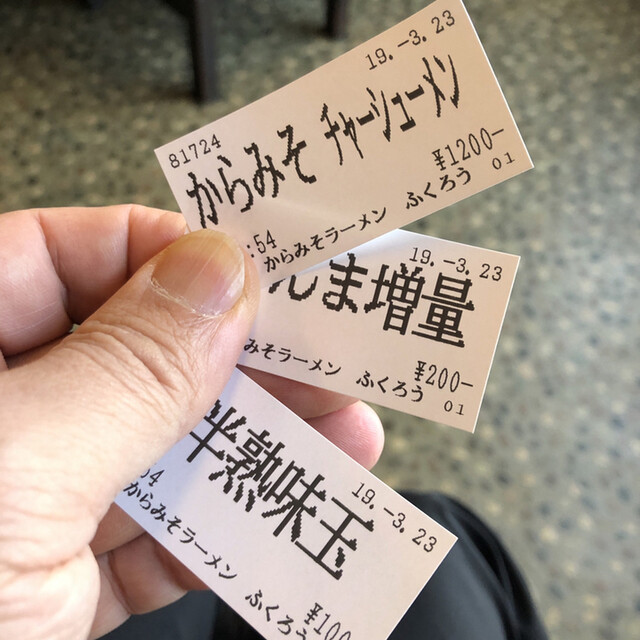 19.-3.23
81724
からみそ チャーシューメン
¥1200-
:54
からみそラーメン ふくろう 01
19.-3.23
ま増量
¥200-
みそラーメン ふくろう 01
19.-3.23
半熟味玉
54
からみそラーメン ふくろう
¥100